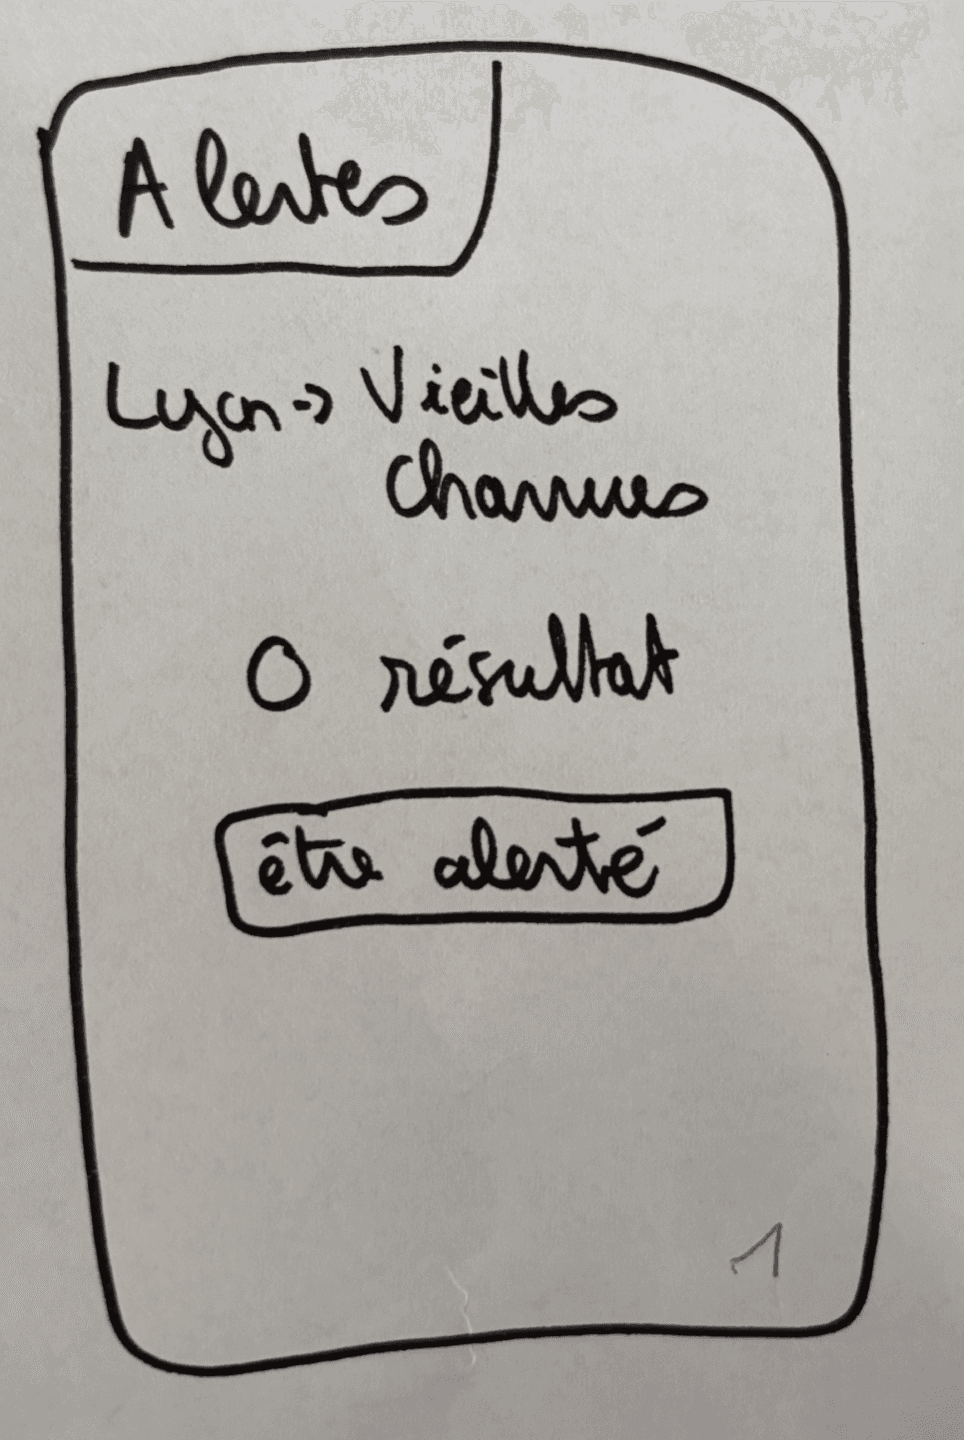 Alertes
Lyon -> Vieilles
Charrues
0 résultat
être alerté
1